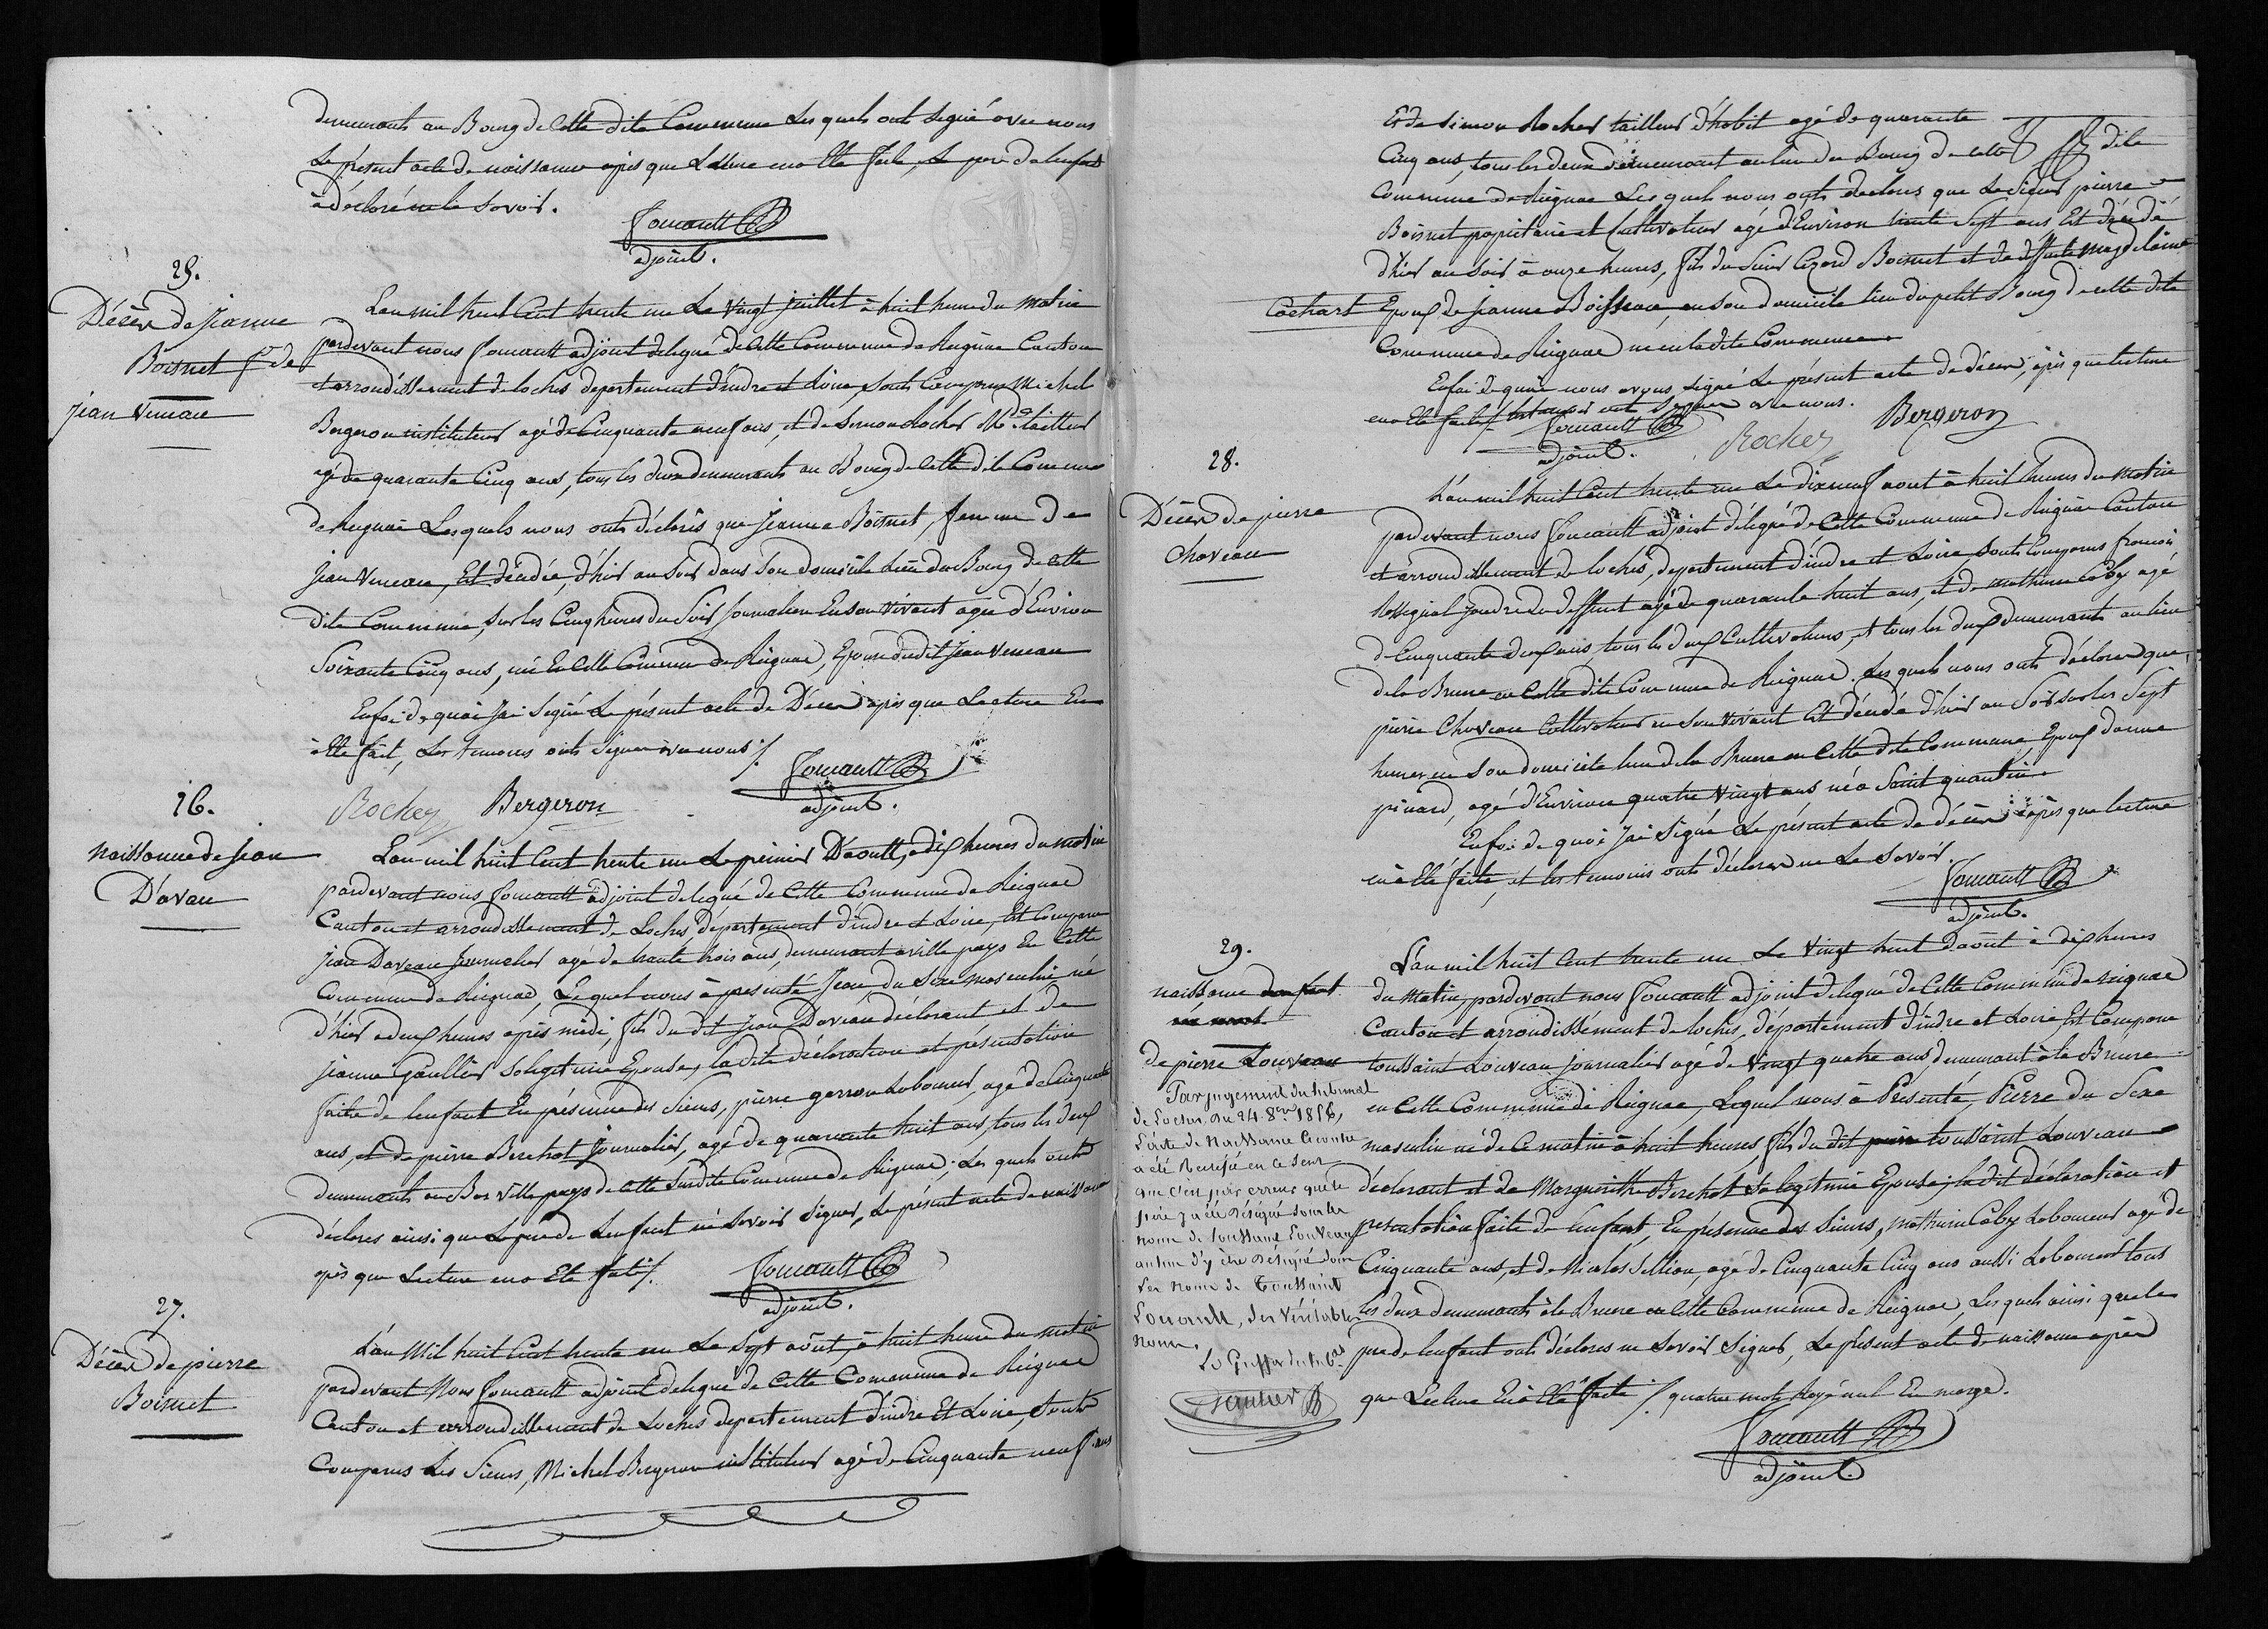 demeurants au Bourg de Cette dite Commune Lesquels ont signé avec nous
Le présent acte de naissance après que Lecture en a Eté faite, Le père de l'enfant
a déclaré ne le savoir.
Foucault
adjoint.
25.
Décès de Jeanne
Boisnet fe de
jean Veneau
L'an mil huit Cent trente un Le vingt juillet à huit heures du matin
pardevant nous Foucault adjoint delegué de Cette Commune de Reignac Canton
et arrondissement de loches departement d'indre et Loire, sont Comparus Michel
Bergeron instituteur agé de Cinquante neuf ans, et de Simon Rocher Md tailleur
agé de quarante Cinq ans, tous les deux demeurants au Bourg de Cette dite Commune
de Reignac Lesquels nous onts déclarés que Jeanne Boisnet, femme de
jean Veneau, Est décédée, d'hier au soir dans son domicile lieu du Bourg de Cette
dite Commune, sur les Cinq heures du Soir journaliere En son vivant agée d'Environ
Soixante Cinq ans, née En Cette Commune de Reignac, Epouse dudit Jean Veneau
En foi de quoi j'ai signé Le présent acte de Décès après que Lecture En
a Eté fait, Les temoins onts signer avec nous /.
Foucault
adjoint.
Rocher Bergeron
26.
Naissance de Jean
D'avau
L'an mil huit Cent trente un Le premier D'aoutt, a dix heures du matin
pardevant nous Foucault adjoint delegué de Cette Commune de Reignac
Canton et arrondissement de Loches département d'indre et Loire, Est Comparu
Jean Daveau journalier agé de trente trois ans, demeurant a ville pays En Cette
Commune de Reignac, Lequel nous à presenté Jean, du Sexe masculin, né
d'hier a deux heures après midi, fils du dit Jean Daveau déclarant et de
Jeanne Gaullier sa legitime Epouse, la dite déclaration et présentation
faite de l'enfant En présence des Sieurs, pierre gerron Laboureur, agé de Cinquante
ans, et de pierre Berchot Journalier, agé de quarante huit ans, tous les deux
demeurants au Bas Ville pays de Cette Susdite Commune de Reignac; Lesquels onts
déclarés ainsi que Le père de L'enfant ne savoir signer, Le présent acte de naissance
après que Lecture en a Eté faite /.
Foucault
adjoint.
27.
Décès de pierre
Boisnet
L'an Mil huit Cent trente un Le Sept août, à huit heures du matin
pardevant Nous Foucault adjoint delegué de Cette Commune de Reignac
Canton et arrondissement de Loches departement d'indre Et Loire, Sonts
Comparus Les Sieurs, Michel Bergeron instituteur agé de Cinquante neuf ans
Et de Simon Rocher tailleur d'habit agé de quarante
Cinq ans, tous les deux demeurant au lieu du Bourg de Cette dite
Commune de Reignac Lesquels nous onts declarés que Le Sieur pierre
Boisnet propriétaire et Cultivateur agé d'Environ trente Sept ans, Est décédé
d'hier au soir à onze heures, fils du Sieur Boisnet et de deffunte magdelaine
Cochart Epoux de Jeanne Boisseau, en son domicile lieu du petit Bourg de cette dite
Commune de Reignac né en ladite Commune
En foi de quoi nous avons signé Le présent acte de décès, après que lecture
en a Eté faite / Les temoins ont signer avec nous.
Foucault
adjoint.
Rocher
Bergeron
28.
Décès de pierre
Chaveau
L'an mil huit Cent trente un Le dix neuf aout à huit heures du matin
pardevant nous Foucault adjoint délégué de Cette Commune de Reignac Canton
et arrondissement de loches, departement d'indre et Loire sonts Comparus francois
Rossignol gendre du deffunt agé de quarante huit ans, et de mathurin Coby agé
de Cinquante deux ans, tous les deux Cultivateurs, et tous les deux demeurants au lieu
de la Bruere en Cette dite Commune de Reignac. Lesquels nous onts déclarer que
pierre Chaveau Cultivateur en son vivant Est décédé d'hier au Soir sur les Sept
heures en Son domicile lieu de la Bruere en Cette dite Commune, Epoux d'anne
pinard, agé d'Environ quatre vingt ans né a Saint quantin
En foi de quoi j'ai signé Le présent acte de décès après que lecture
en à Eté faite, et les temoins onts déclarer ne Le savoir.
Foucault
adjoint.
29.
naissance d'enfant
né mort
de pierre Louveau
Par jugement du tribunal
de Loches, du 24 8bre 1856,
L'acte de Naissance ci contre
a été Rectifié en ce sens
que c'est par erreur que le
père y a été désigné sous les
noms de Toussaint Louveau
au lieu d'y être désigné sous
les noms de Toussaint
Louault, ses véritables
noms.
Le Greffier du trib.al
L'an mil huit Cent trente un Le Vingt huit d'août à dix heures
du Matin, pardevant nous Foucault adjoint delegué de Cette Commune de reignac
Canton et arrondissément de loches, département d'indre et Loire Est Comparu
toussaint Louveau journalier agé de Vingt quatre ans, demeurant à la Bruere
en Cette Commune de Reignac, Lequel nous à Présenté, Pierre du Sexe
masculin né de Ce matin à huit heures, fils du dit pierre toussaint Louveau
déclarant et de Margueritte Berchot sa legitime Epouse; ladit déclaration et
presentation faite de l'enfant, En présence des Sieurs, mathurin Coby Laboureur agé de
Cinquante ans, et de Nicolas Sillion, agé de Cinquante Cinq ans aussi Laboureur tous
les deux demeurants à la Bruere en Cette Commune de Reignac, Lesquels ainsi que le
père de l'enfant onts déclarés ne savoir signer, Le présent acte de naissance après
que Lecture En à Eté faite /. quatre mots Rayé nul En marge.
Foucault
adjoint